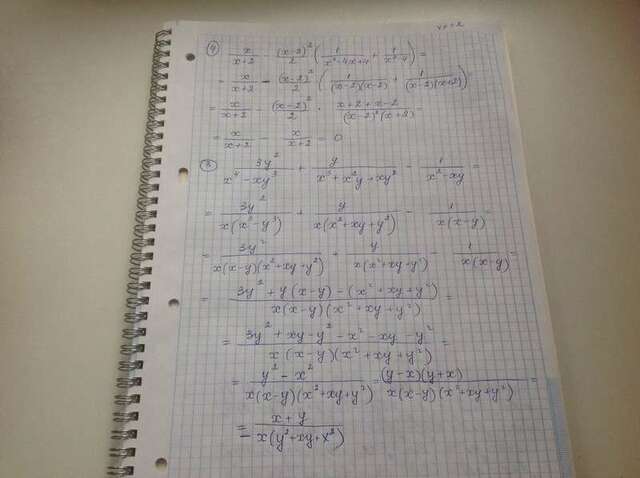 ④ x/(x+2) - (x-2)²/2 (1/(x²-4x+4) + 1/(x²-4)) =
= x/(x+2) - (x-2)²/2 (1/((x-2)(x-2)) + 1/((x-2)(x+2))) =
= x/(x+2) - (x-2)²/2 · (x+2+x-2)/((x-2)²(x+2)) =
= x/(x+2) - x/(x+2) = 0
3y²/(x⁴-xy³) + y/(x³+x²y+xy²) - 1/(x²-xy) =
= 3y²/(x(x³-y³)) + y/(x(x²+xy+y²)) - 1/(x(x-y)) =
= 3y²/(x(x-y)(x²+xy+y²)) + y/(x(x²+xy+y²)) - 1/(x(x-y)) =
= (3y²+y(x-y)-(x²+xy+y²))/(x(x-y)(x²+xy+y²)) =
= (3y²+xy-y²-x²-xy-y²)/(x(x-y)(x²+xy+y²)) =
= (y²-x²)/(x(x-y)(x²+xy+y²)) = (y-x)(y+x)/(x(x-y)(x²+xy+y²)) =
= - (x+y)/(x(y²+xy+x²))